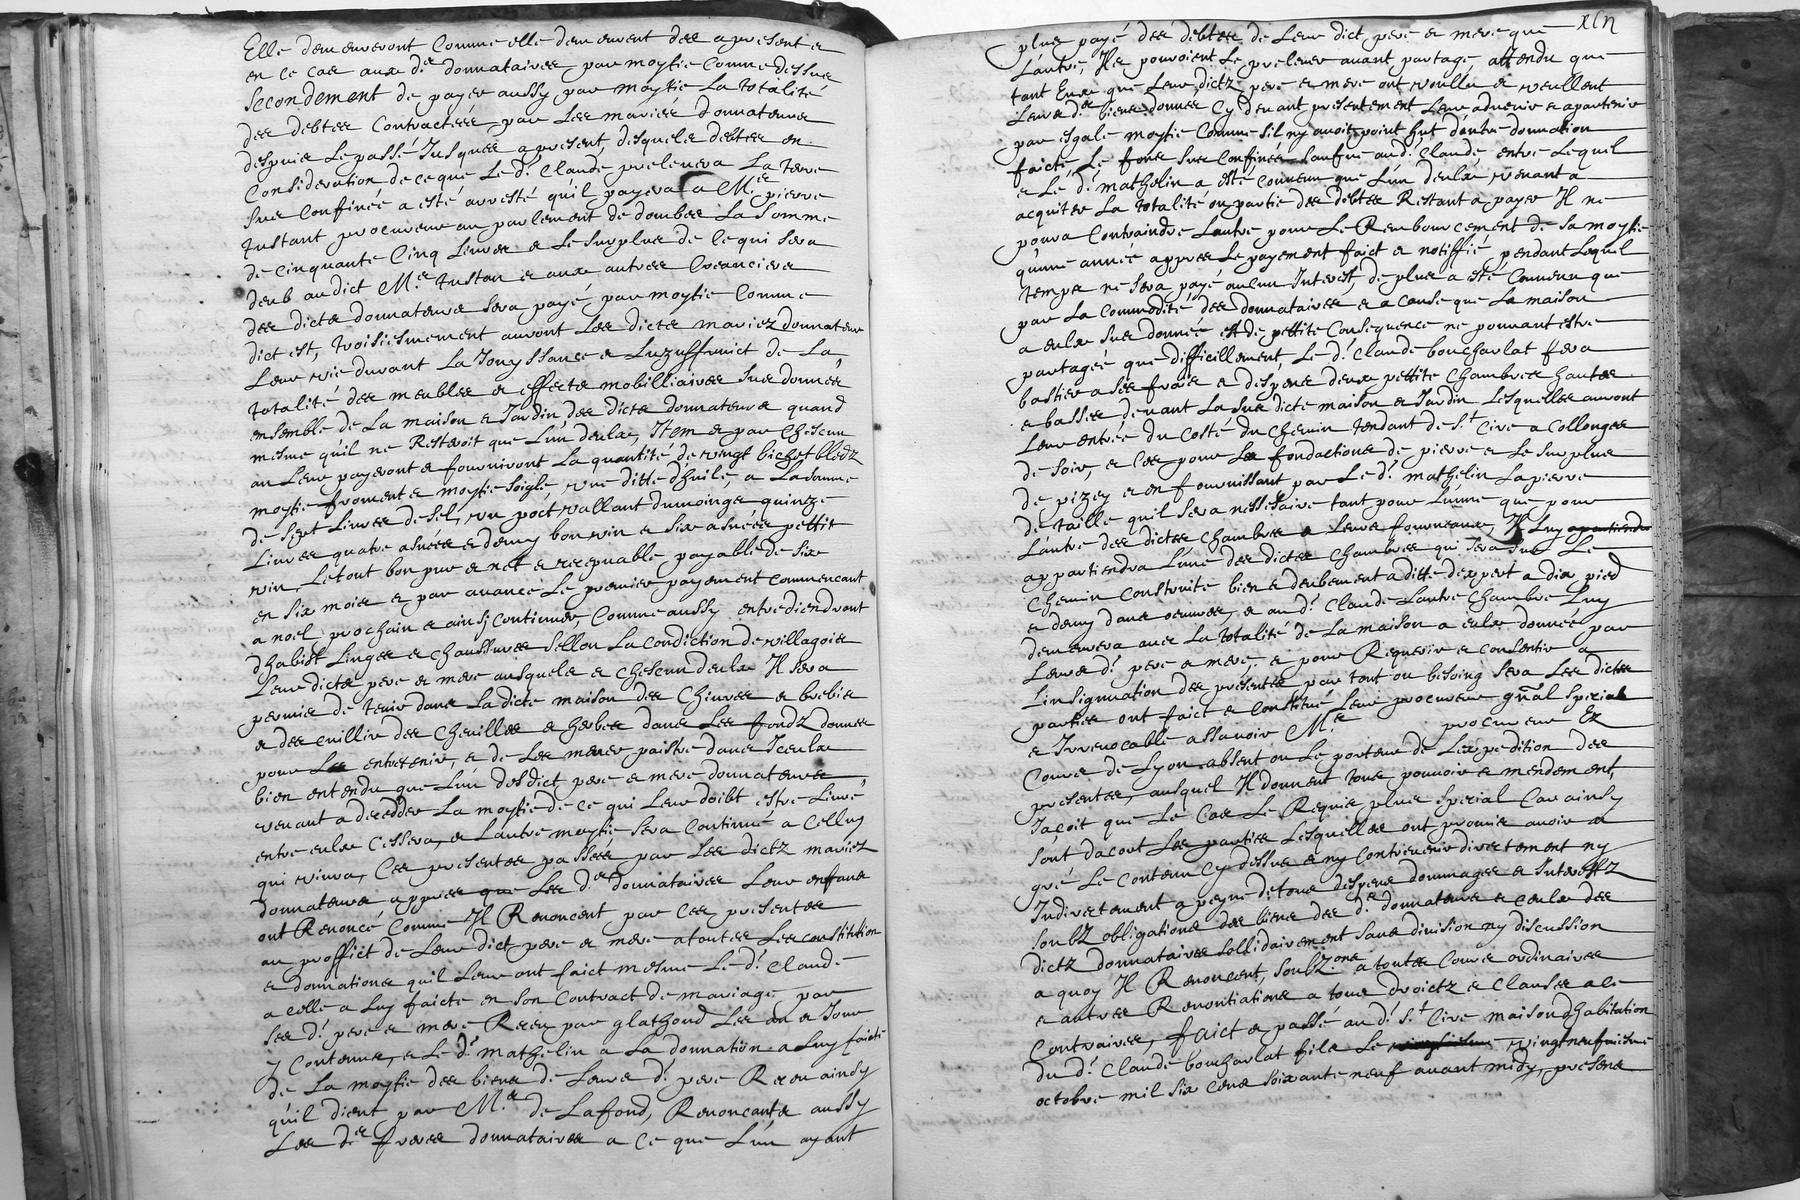 Elle demeureront Comme elle demeurent des apresent et
en ce cas aux dᵗˢ donnataires par moytie Comme dessus
Secondement de payer aussy par moytie La totalité
des debtes Contractées par Les mariés donnateurs
despuis Le passé Jusques apresent, desquels debtes en
Consideration de ce que Le dᵗ Claude prelevera La terre
Sus Confinée a esté arresté qu'il payera a Mᵉ pierre
Justant procureur au parlement de dombes La Somme
de cinquante Cinq Livres et Le Surplus de Ce qui Sera
deub audict Mᵉ Justan et aux autres Creanciers
des dicts donnateurs Sera payé par moytie Comme
dict est, troisiesmement auront Les dicts mariez donnateurs
Leur vie durant La Jouyssance et Luzuffruict de La
totalité des meubles et effects mobilliaires Sus donnés
ensemble de La maison et Jardin des dicts donnateurs quand
mesme qu'il ne Resteroit que L'un deulx, Item et par Chescun
an Leur payeront et fourniront La quantité de vingt bichot bledz
moytie froment et moytie soigle, une ditte d'huile, a La Somme
de Sept Livres de Sel, un poct vallant dumoings quinze
Livres quatre asnées et demy bon vin et Six asnées pettit
vin, Le tout bon pur et net et recepvable payable de Six
en Six mois et par avance Le premier payement commencant
a noel prochain et ainsi continuer, Comme aussy entrediendront
d'habist Linges et chaussures Sellon La Condiction de villagois
Leur dicts pere et mere ausquels et chescun deulx Il Sera
permis de tenir dans La dicte maison des Chievres et brebis
et des cuillir des Cheuilles et herbes dans Les fondz donnes
pour Les entretenir, et de Les mener paistre dans Iceulx
bien entendu que L'un desdict pere et mere donnateurs
venant a dedder La moytie de ce qui Leur doibt estre Livré
entre eulx Cessera, et Lautre moytie Sera Continué a Celluy
qui vivra, Ces presentes passées par Les dictz mariez
donnateurs appres que Les dᵗˢ donnataires Leur enffans
ont Renoncé Comme Il Renoncent par Ces presentes
au proffict de Leur dict pere et mere atoutes Les constitution
et donnations quil Leur ont faict mesme Le dᵗ Claude
a celle a Luy faicte en Son Contract de mariage par
Ses dᵗ pere et mere Receu par glathoud Les an et Jour
y Contenus, et Le dᵗ mathelin a La donnation a Luy faicte
de La moytie des biens de Leurs dᵗ pere Receu ainsy
qu'il dient par Mᵉ de Lafond, Renoncants aussy
Les dᵗˢ freres donnataires a Ce que L'un ayant
plus payé des debtes de Leur dict pere et mere que
Lautre, Ils pouvoient Le prelever avant partage attendu que
tant Eux que Leur dictz pere et mere ont voullu et veullent
Leurs dᵗ biens donnes Cy devant presentement Leur advenir et apartenir
par esgale moytie Comme s'il ny avoit point hut d'autre donnation
faicte, Le fons Sus Confinée Saufsus au dᵗ Claude, entre Lequel
et Le dᵗ mathelin a esté Convenu que L'un deulx venant a
acquiter La totalité ou partie des debtes Restant a payer Il ne
poura Contraindre Lautre pour Le Rembourcement de Sa moytie
qu'une année appres Le payement faict et nottiffié, pendant Lequel
temps ne Sera payé aucun Interest, de plus a esté Convenu que
par La Commodité des donnataires et a cause que La maison
a eulx Sus donnée est de pettite Consequence ne pouvant estre
partagée que difficillement, Le dᵗ Claude boucharlat fera
bastir a Ses frais et despens deux pettite Chambres hautes
et basses devant La Sus dicte maison et Jardin Lesquelles auront
Leur entrée du Costé du Chemin tendant de Sᵗ Cire a Collonges
de Soir, et Ces pour Les fondactions de pierre et Le Surplus
de pizey et en fournissant par Le dᵗ mathelin La pierre
de taille quil Sera nessessaire tant pour L'une que pour
Lautre des dictes Chambres et Leurs fourneaux, Il Luy apartiendra
appartiendra L'une des dictes Chambres qui Sera Sus Le
Chemin Construite bien et deubement a ditte d'expert a dix pied
et demy dans oeuvres, et au dᵗ Claude Lautre Chambre Luy
demeurera avec La totalité de La maison a eulx donnée par
Leurs dᵗ pere et mere, et pour Requerir et Consentir a
L'insignuation des presentes par tout ou besoing Sera Les dictes
parties ont faict et Constitué Leur procureur gnäl Special
et Irrevocable assavoir Mᵉ procureur Ez
Cours de Lyon absent ou Le porteur de L'expedition des
presentes, ausquel Il donnent tous pouvoir et mendement,
Jaçoit que Le Cas Le Requis plus Special Car ainsy
Sont dacort Les parties Lesquelles ont promis avoir a
gré Le Contenu Cy dessus et ny Contrevenir directement ny
Indirectement a peyne de tous despens dommages et Interestz
Soubz obligations des biens des dᵗˢ donnateurs et ceulx des
dictz donnataires Sollidairement Sans division ny discussion
a quoy Il Renoncent, Soubz one a toutes Cours ordinaires
et autres Renontiations a tous droictz et Clauses a ce
Contraires, faict et passé au dᵗ Sᵗ Cire maison d'habitation
du dᵗ Claude boucharlat fils Le vingtneufviesme
octobre mil Six Cens Soixante neuf avant midy, presens